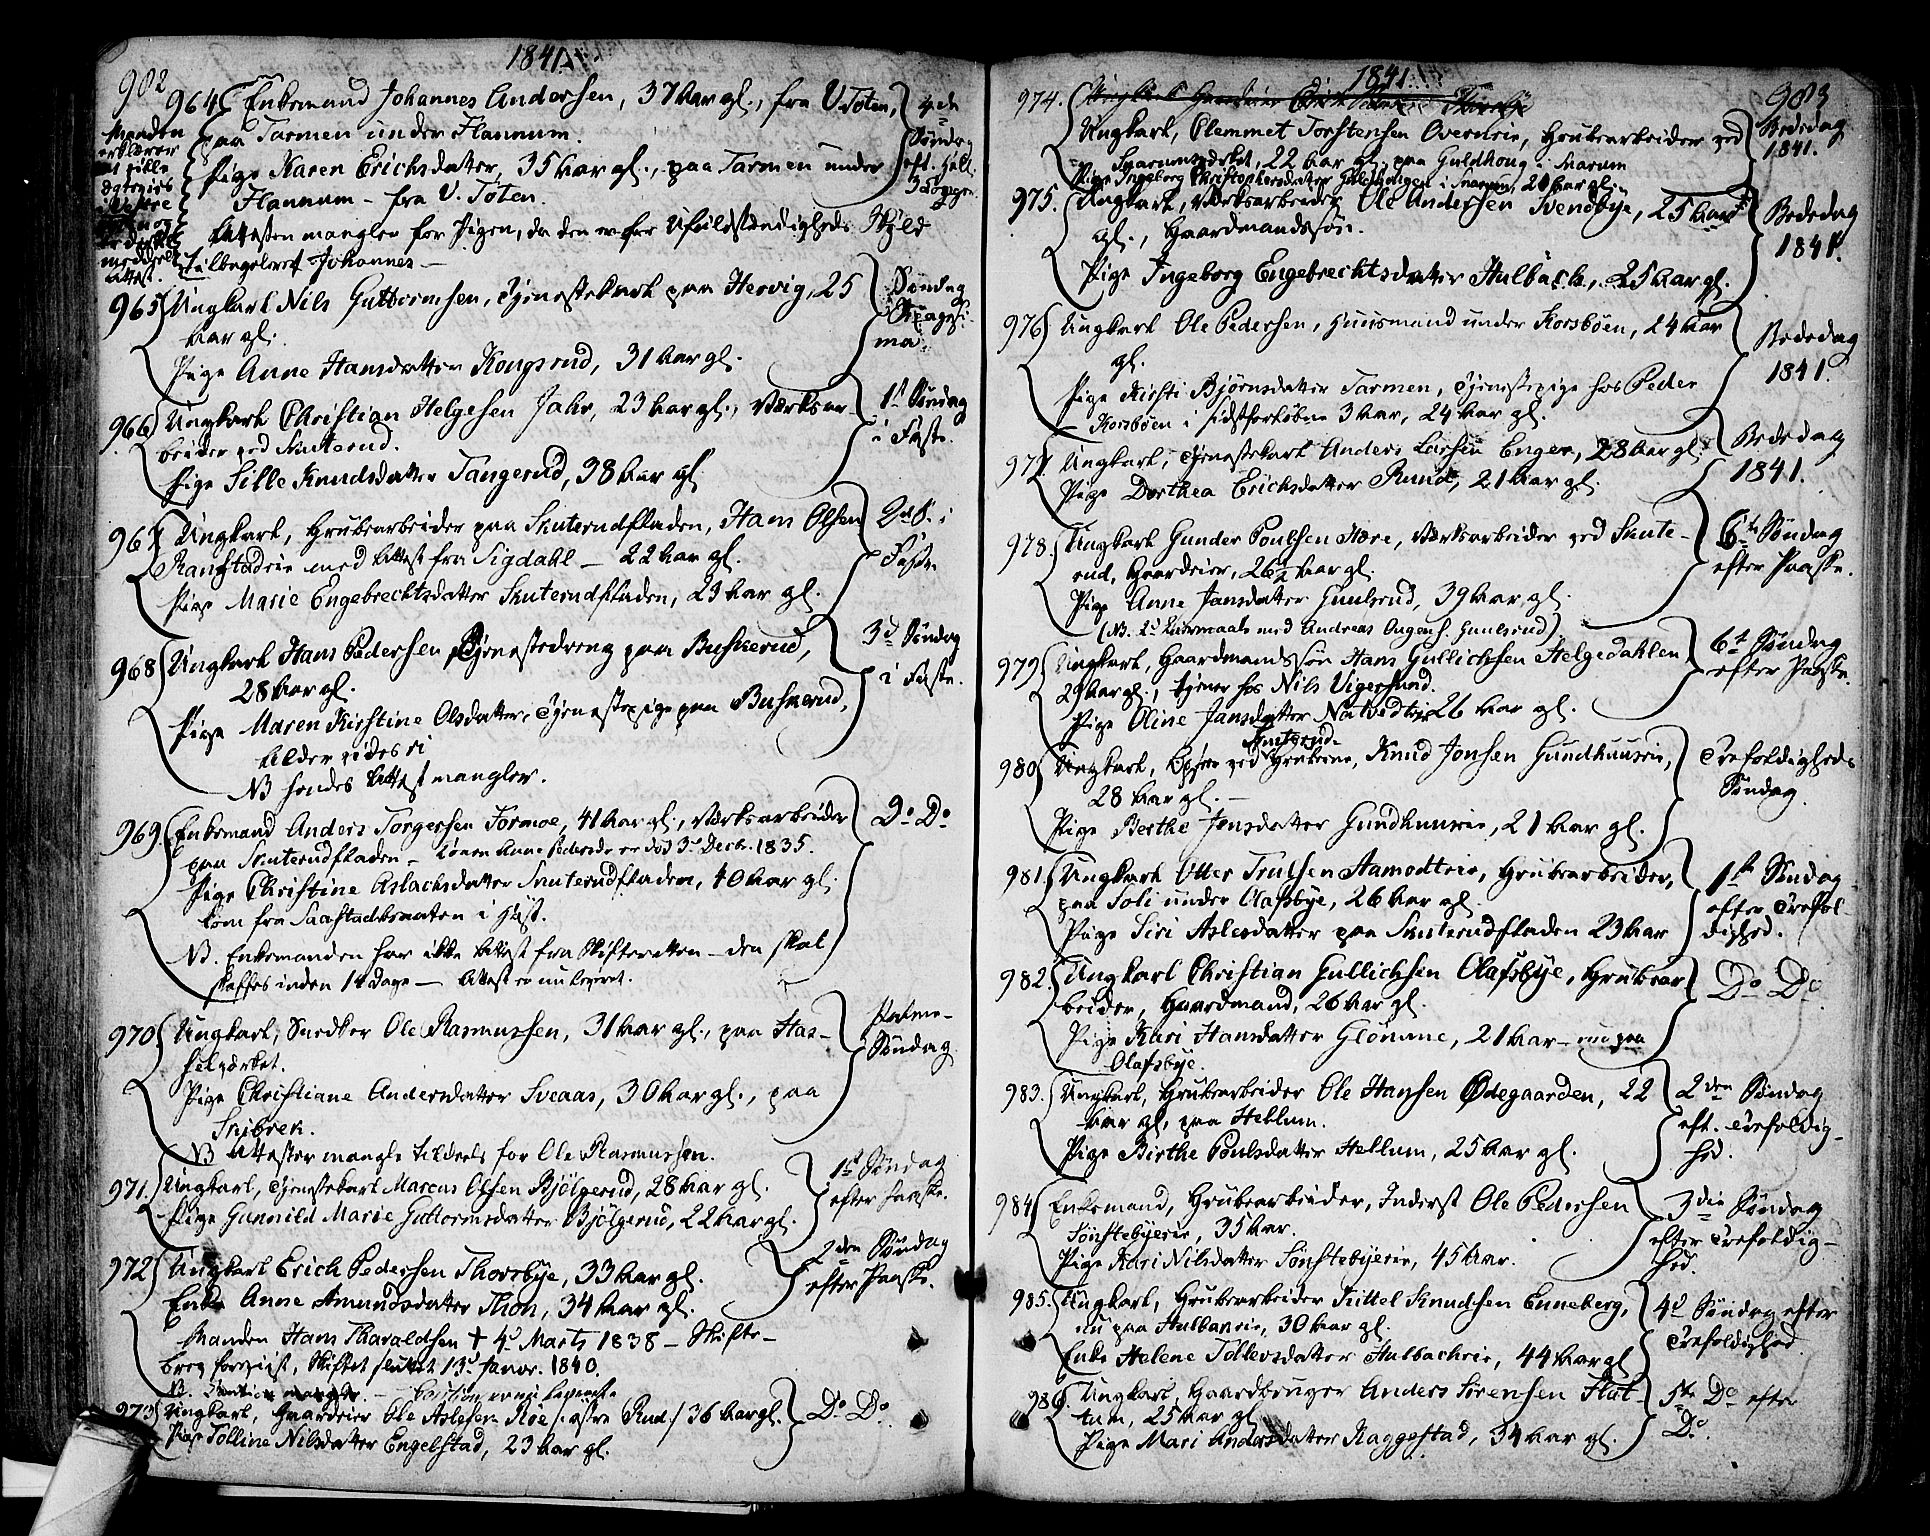 982
1841.
964 Enkemand Johannes Andersen, 37 Aar gl., fra V. Toten,
paa Tarmen under Flannum.
Pige Karen Erichsdatter, 35 Aar gl., paa Tarmen under
Flannum - fra V. Toten.
Attesten mangler for Pigen, da den er for Ufuldstændigheds Skyld
tilbageleveret Johannes -
Manden
erklærer
4de
Søndag
965 Ungkarl Nils Guttormsen, Tjenestekarl paa Hervig, 25
Aar gl.
Pige Anne Hansdatter Kongsrud, 31 Aar gl.
Søndag
Sexagesi-
ma.
966 Ungkarl Christian Helgesen Jahr, 23 Aar gl., Værksar-
beider ved Skuterud.
Pige Sille Knudsdatter Tangerud, 38 Aar gl.
1st Søndag
i Faste.
967 Ungkarl, Grubearbeider paa Skuterudfladen, Hans Olsen
Ramstadeie med Attest fra Sigdahl - 22 Aar gl.
Pige Marie Engebrechtsdatter Skuterudfladen, 23 Aar gl.
2d S. i
Faste.
968 Ungkarl Hans Pedersen, Tjenestedreng paa Buskerud,
28 Aar gl.
Pige Maren Kirstine Olsdatter, Tjenestepige paa Buskerud,
Alder vides ei
NB hendes Attest mangler.
3d Søndag
i Faste.
969 Enkemand Anders Torgersen Formoe, 41 Aar gl., Værksarbeider
paa Skuterudfladen - Konen Anne Pedersdr er død 3d Decbr. 1835.
Pige Christine Aslachsdatter Skuterudfladen, 40 Aar gl.
kom fra Saastadbraaten i Høst.
NB. Enkemanden har ikke Attest fra Skifteretten - den skal
skaffes inden 14 Dage - Attest er nu leveret.
Do Do
970 Ungkarl, Snedker Ole Rasmussen, 31 Aar gl., paa Has-
selværket.
Pige Christiane Andersdatter Sveaas, 30 Aar gl., paa
Snibrek.
NB Attester mangle tildeels for Ole Rasmussen.
Palme-
Søndag
971 Ungkarl, Tjenestekarl Marcus Olsen Bjölgerud, 28 Aar gl.
Pige Gunnild Marie Guttormsdatter Bjölgerud, 22 Aar gl.
1st Søndag
efter Paaske.
972 Ungkarl Erich Pedersen Thorsbye, 33 Aar gl.
Enke Anne Amundsdatter Thon, 34 Aar gl.
Manden Hans Tharaldsen † 4d Marts 1838 - Skifte-
brev forevist, Skiftet sluttet 13d Janvr. 1840.
2den Søndag
efter Paaske.
973 Ungkarl, Gaardeier Ole Aslesen Røe /: østre Rud :/ 36 Aar gl.
Pige Tolline Nilsdatter Engelstad, 23 Aar gl.
Do Do
1841.
983
974.
Ungkarl, Clemmet Torstensen Overneie, Grubearbeider ved
Snarumsværket, 22 Aar gl. paa Guldhoug i Snarum
Pige Ingeborg Christophersdatter Guldhougen i Snarum, 20 Aar gl.
Bededag
1841.
975. Ungkarl, Værksarbeider Ole Andersen Svendbye, 25 Aar
gl., Gaardmandssøn.
Pige Ingeborg Engebrechtsdatter Hulbach., 25 Aar gl.
Bededag
1841.
976 Ungkarl Ole Pedersen, Huusmand under Korsböen, 24 Aar
gl.
Pige Kirsti Bjørnsdatter Tarmen, Tjenestepige hos Peder
Korsböen i sidstforløbne 3 Aar, 24 Aar gl.
Bededag
1841.
977. Ungkarl, Tjenestekarl Anders Larsen Enger, 28 Aar gl.
Pige Dorthea Erichsdatter Rund, 21 Aar gl.
Bededag
1841.
978. Ungkarl Gunder Poulsen Hære, Værksarbeider ved Skute-
rud, Gaardeier, 26½ Aar gl.
Pige Anne Jansdatter Guulsrud, 39 Aar gl.
(NB. 2d Leiermaal med Andreas Gunsrud)
6te Søndag
efter Paaske.
979 Ungkarl, Gaardmandssøn Hans Gullichsen Helgedahlen
29 Aar gl., tjener hos Nils Vigersund.
Pige Oline Jansdatter Natvedtie 26 Aar gl.
6te Søndag
efter Paaske.
980 Ungkarl, Opseer ved Skuterud Gruberne, Knud Jonsen Gundhuusein,
28 Aar gl. -
Pige Berthe Jensdatter Gundhuuseie, 21 Aar gl.
Trefoldigheds
Søndag.
981. Ungkarl Otter Trulsen Aamodteie, Grubearbeider,
paa Soli under Olafsbye, 26 Aar gl.
Pige Siri Aslesdatter paa Skuterudfladen 23 Aar
1ste Søndag
efter Trefol
dighed.
982. Ungkarl Christian Gullichsen Olafsbye, Grubear
beider, Gaardmand, 26 Aar gl.
Pige Kari Hansdatter Glömme, 21 Aar - nu paa
Olafsbye.
Do Do
983. Ungkarl, Grubearbeider Ole Hansen Ødegaarden, 22
Aar gl, paa Hellum.
Pige Birthe Poulsdatter Hellum, 25 Aar gl.
2den Søndag
eft. Trefoldig-
hed.
984 Enkemand, Grubearbeider, Inderst Ole Pedersen
Sønstebyeeie, 35 Aar.
Pige Kari Nilsdatter Sönstebyeeie, 45 Aar.
3die Søndag
efter Trefoldig-
hed.
985. Ungkarl, Grubearbeider Kittel Knudsen Enneberg,
nu paa Hulbakeie, 30 Aar gl.
Enke Helene Tollevsdatter Hulbacheie, 44 Aar gl
4d Søndag efter
Trefoldighed.
986. Ungkarl, Gaardbruger Anders Sörensen Flat-
tum, 25 Aar gl
Pige Mari Andersdatter Raggestad, 34 Aar gl.
5te Do efter
Do.